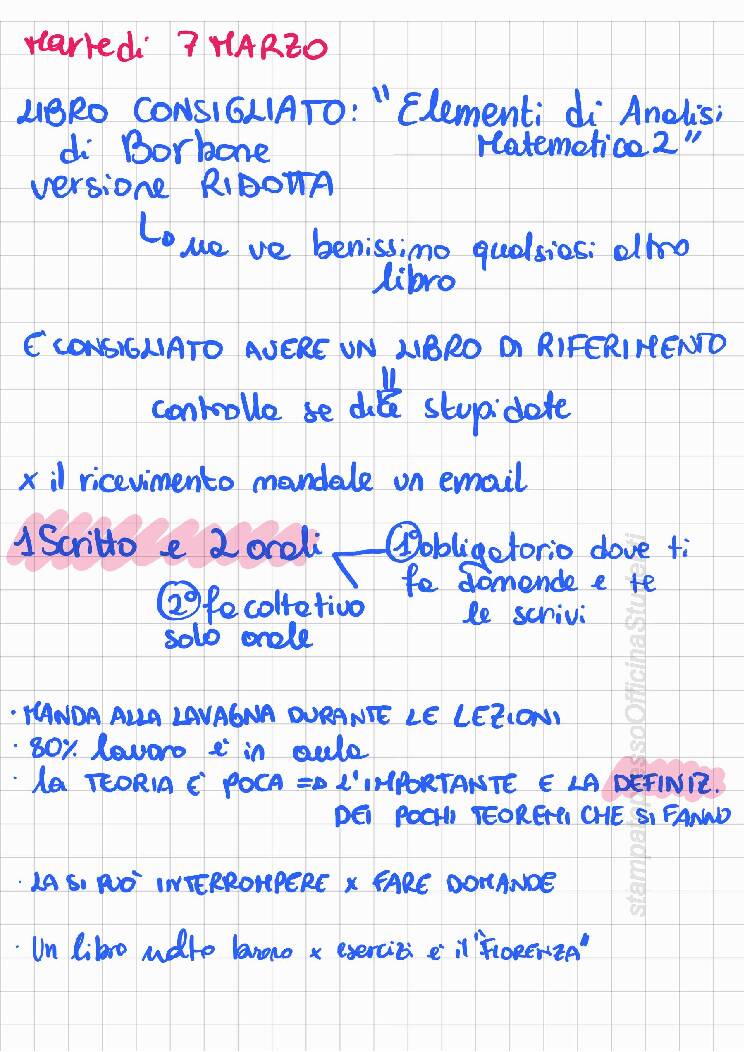 Martedì 7 MARZO
LIBRO CONSIGLIATO: "Elementi di Analisi
di Borbone Matematica 2"
versione RIDOTTA
ma va benissimo qualsiasi altro
libro
È CONSIGLIATO AVERE UN LIBRO DI RIFERIMENTO
controlla se dite stupidate
x il ricevimento mandale un email
1 Scritto e 2 orali 1° obbligatorio dove ti
fa domande e te
le scrivi
2° facoltativo
solo orale
· MANDA ALLA LAVAGNA DURANTE LE LEZIONI
· 80% lavoro è in aula
· la TEORIA È POCA => L'IMPORTANTE E LA DEFINIZ.
DEI POCHI TEOREMI CHE SI FANNO
· LA SI PUÒ INTERROMPERE x FARE DOMANDE
· Un libro molto x esercizi è il "FIORENZA"
OfficinaStudenti